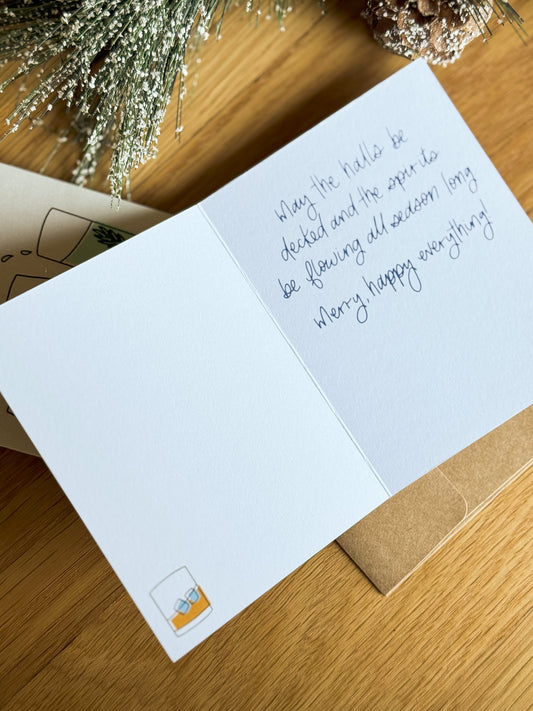 May the halls be
decked and the spirits
be flowing all season long
Merry, happy everything!